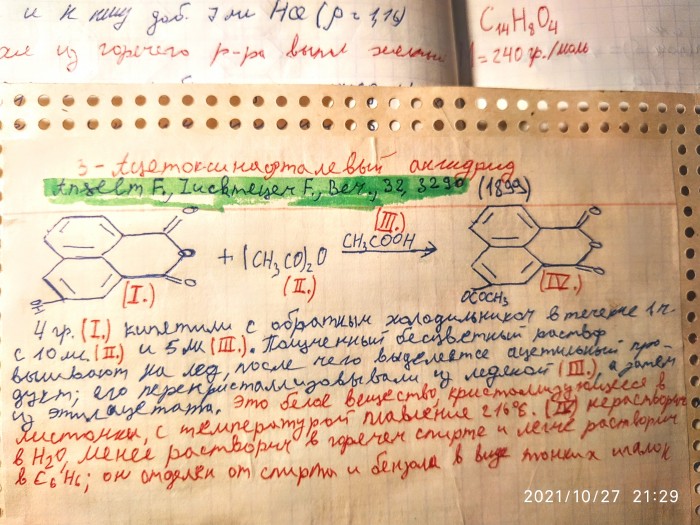 и к нему доб. 3 мл HCl (ρ = 1,16)
из горячего р-ра выпл
C14H8O4
= 240 гр./моль
3-Ацетоксинафталевый ангидрид
Анзевт F., Zuckmayer F., Ber., 32, 3290 (1899)
(III.)
+ (CH3CO)2O
CH3COOH
OH
OCOCH3
(I.)
(II.)
(IV.)
4 гр. (I.) кипятили с обратным холодильником в течение 1 ч.
с 10 мл (II.) и 5 мл (III.). Полученный бесцветный раствор
выливают на лёд, после чего выделяется ацетильный про-
дукт; его перекристаллизовывали из ледяной (III.), а затем
из этилацетата. Это белое вещество, кристаллизующееся в
листочки, с температурой плавление 216°C. (IV.) нерастворим
в H2O, менее растворим в горячем спирте и легче растворим
в C6H6; он отделен от спирта и бензола в виде тонких иголок
2021/10/27 21:29